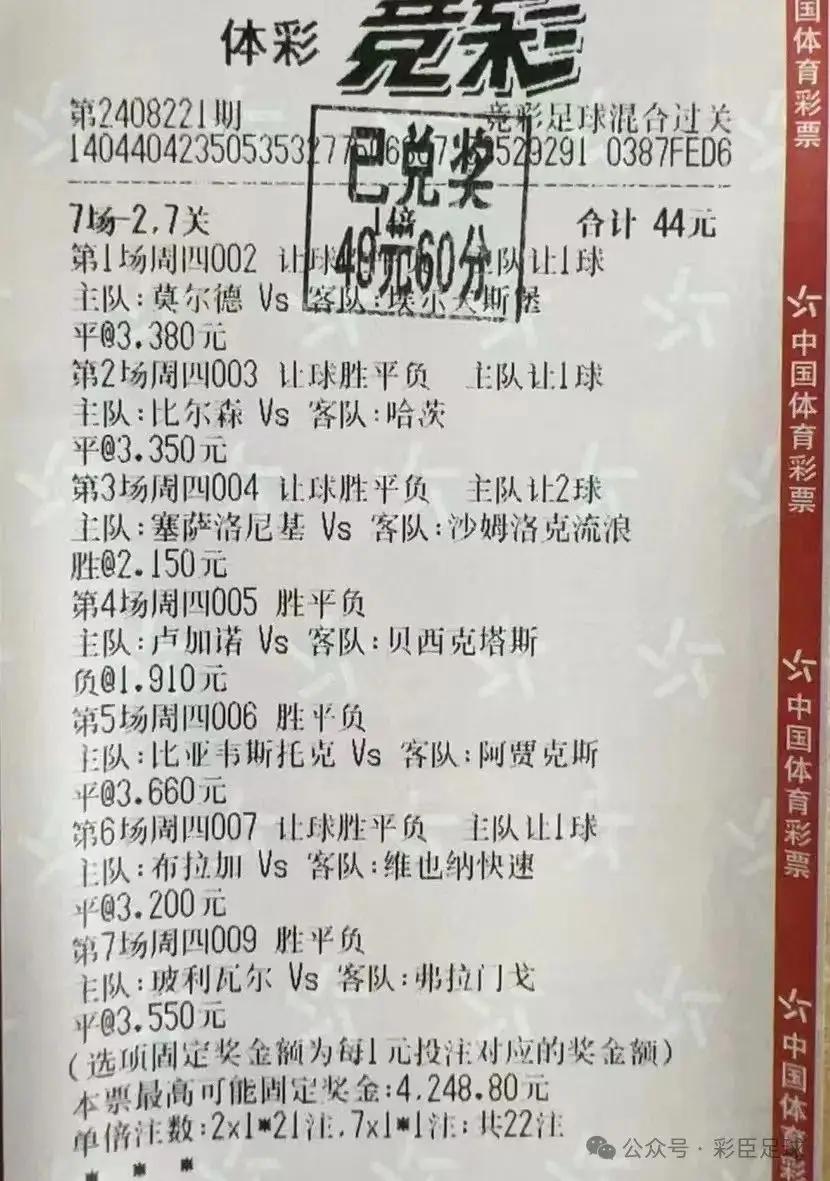 体彩 竞彩
第2408221期 竞彩足球混合过关
14044042350535327 529291 0387FED6
已兑奖
40元60分
7场-2,7关 1倍 合计 44元
第1场周四002 让球 主队让1球
主队:莫尔德 Vs 客队:埃尔夫斯堡
平@3.380元
第2场周四003 让球胜平负 主队让1球
主队:比尔森 Vs 客队:哈茨
平@3.350元
第3场周四004 让球胜平负 主队让2球
主队:塞萨洛尼基 Vs 客队:沙姆洛克流浪
胜@2.150元
第4场周四005 胜平负
主队:卢加诺 Vs 客队:贝西克塔斯
负@1.910元
第5场周四006 胜平负
主队:比亚韦斯托克 Vs 客队:阿贾克斯
平@3.660元
第6场周四007 让球胜平负 主队让1球
主队:布拉加 Vs 客队:维也纳快速
平@3.200元
第7场周四009 胜平负
主队:玻利瓦尔 Vs 客队:弗拉门戈
平@3.550元
(选项固定奖金额为每1元投注对应的奖金额)
本票最高可能固定奖金:4,248.80元
单倍注数:2x1*21注,7x1*1注;共22注
* * *
国体育彩票
中国体育彩票
中国体育彩票
中国体育彩
公众号·彩臣足球